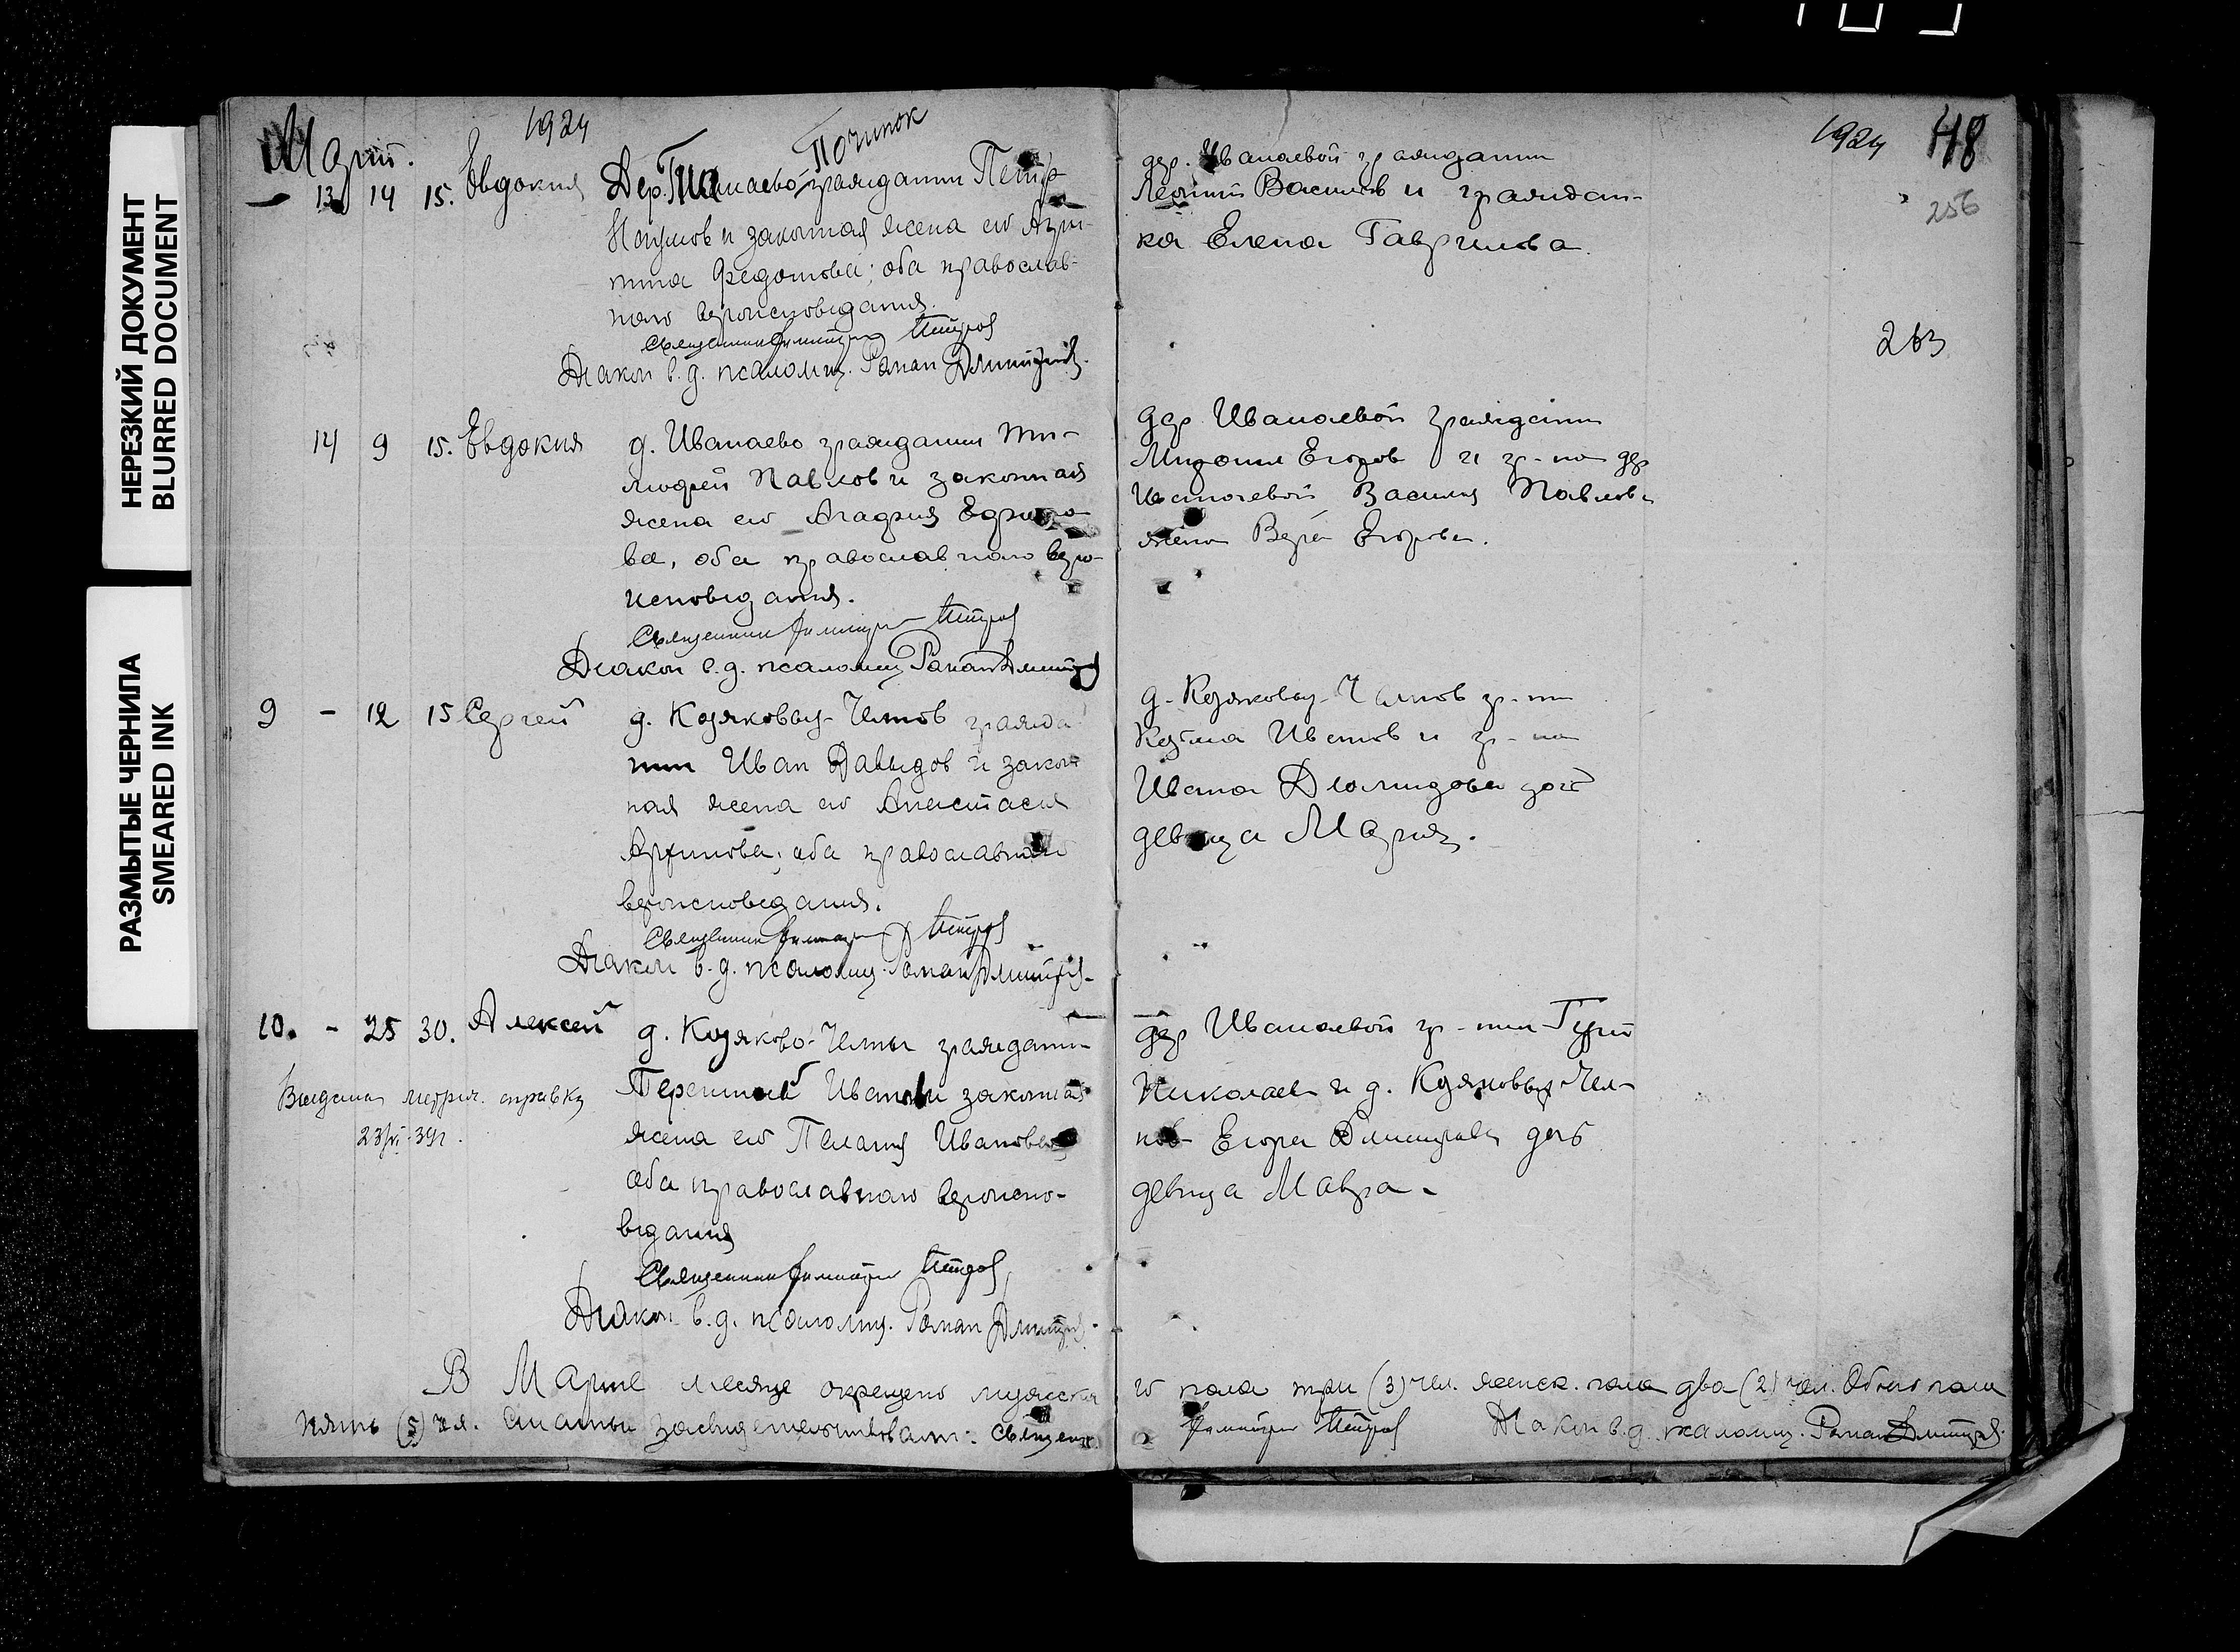 НЕРЕЗКИЙ ДОКУМЕНТ
BLURRED DOCUMENT
РАЗМЫТЫЕ ЧЕРНИЛА
SMEARED INK
Март. 1924
Починок
13 14 15. Евдокия Дер. гражданин Петр
Наумов и законная жена его
Федотова; оба православ-
ного вероисповедания.
Священник Димитрий Петров
Диакон в.д. псаломщ. Роман Дмитриев.
14 9 15. Евдокия д. Иванаево гражданин Ти-
мофей Павлов и законная
жена его Агафия Ефимо-
ва, оба православного веро-
исповедания.
Священник Димитрий Петров
Диакон в.д. псаломщ Роман Дмитриев
9 - 12 15 Сергей д. Козяковых-Челнов гражда
нин Иван Давыдов и закон
ная жена его Анастасия
оба православного
вероисповедания.
Священник Димитрий Петров
Диакон в.д. псаломщ. Роман Дмитриев.
10. - 25 30. Алексей д. Козяково-Челны гражданин
Терентий Иванов и законная
жена его Пелагия Иванова
оба православного вероиспо-
ведания
Священник Димитрий Петров
Диакон в.д. псаломщ. Роман Дмитриев.
метрич. справку
23/VI-39г.
В Марте месяце окрещено мужска
пять (5) чел. Статьи засвидетельствовали: Священ.
1924 48
256
263
дер. Иванаевой гражданин
Леонтий Васильев и граждан-
ка Елена Гаврилова.
дер Иванаевой гражданин
Михаил Егоров и гр-на дер
Иванаевой Василия Павлова
жена Вера Егорова.
д. Козяковых-Челнов гр-нин
Козма Иванов и гр-на
Ивана Диомидова доч
девица Мария.
дер Иванаевой гр-нин Гурий
Николаев и д. Козяковых Чел-
нов Егора Димитриева дочь
девица Мавра.
го пола три (3) чел. женск. пола два (2) чел. Обоего пола
Димитрий Петров Диакон в.д. псаломщ. Роман Дмитриев.